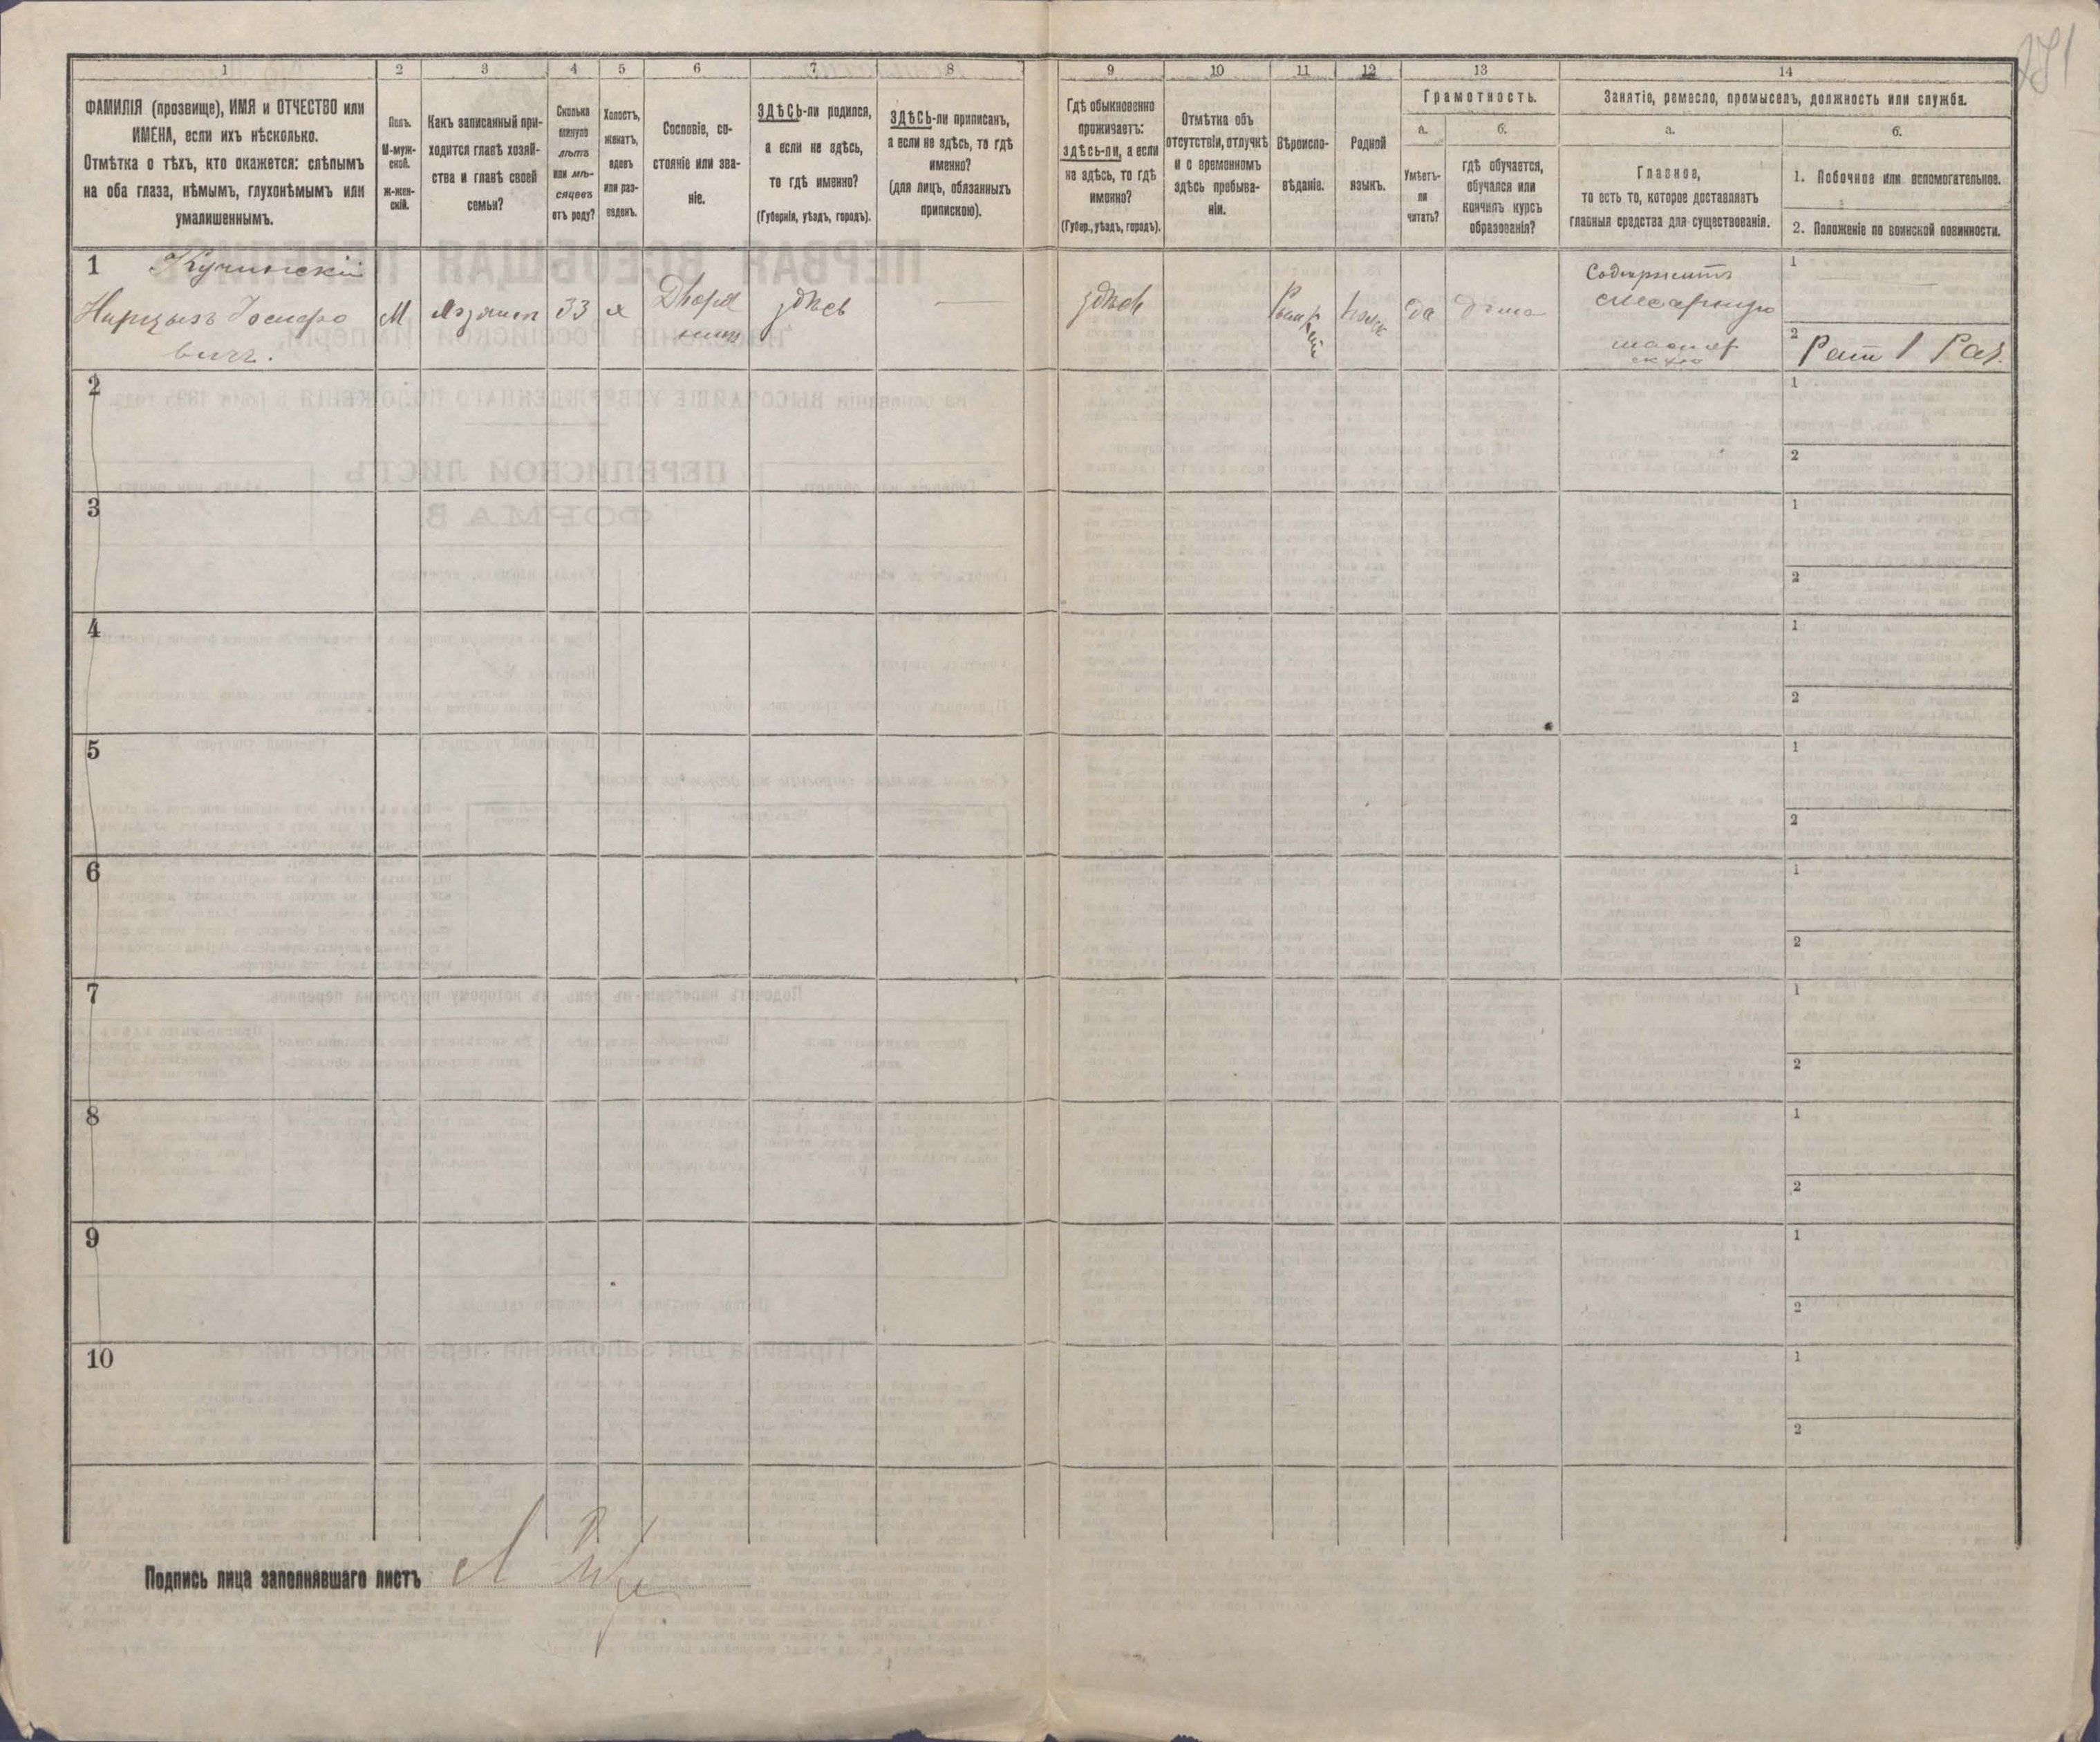 1
2
3
4
5
6
7
8
9
10
11
12
13
14
ФАМИЛІЯ (прозвище), ИМЯ и ОТЧЕСТВО или
ИМЕНА, если ихъ нѣсколько.
Отмѣтка о тѣхъ, кто окажется: слѣпымъ
на оба глаза, нѣмымъ, глухонѣмымъ или
умалишеннымъ.
Полъ.
М-муж-
ской.
ж-жен-
скій.
Какъ записанный при-
ходится главѣ хозяй-
ства и главѣ своей
семьи?
Сколько
минуло
лѣтъ
или мѣ-
сяцевъ
отъ роду?
Холостъ,
женатъ,
вдовъ
или раз-
веденъ.
Сословіе, со-
стояніе или зва-
ніе.
ЗДѢСЬ-ли родился,
а если не здѣсь,
то гдѣ именно?
(Губернія, уѣздъ, городъ).
ЗДѢСЬ-ли приписанъ,
а если не здѣсь, то гдѣ
именно?
(для лицъ, обязанныхъ
припискою).
Гдѣ обыкновенно
проживаетъ:
здѣсь-ли, а если
не здѣсь, то гдѣ
именно?
(Губер., уѣздъ, городъ).
Отмѣтка объ
отсутствіи, отлучкѣ
и о временномъ
здѣсь пребыва-
ніи.
Вѣроиспо-
вѣданіе.
Родной
языкъ.
Грамотность.
а.
Умѣетъ-
ли
читать?
б.
гдѣ обучается,
обучался или
кончилъ курсъ
образованія?
Занятіе, ремесло, промыселъ, должность или служба.
а.
Главное,
то есть то, которое доставляетъ
главныя средства для существованія.
б.
1. Побочное или вспомогательное.
2. Положеніе по воинской повинности.
1
Кучинскій
Нарцызъ Іосифо
вичъ.
М
хозяинъ
33
х
Дворя
нинъ
здѣсь
—
здѣсь
да
дома
Содержитъ
слесарную
мастер
скую
1
—
2
Рат 1 Раз.
2
1
2
3
1
2
4
1
2
5
1
2
6
1
2
7
1
2
8
1
2
9
1
2
10
1
2
Подпись лица заполнявшаго листъ